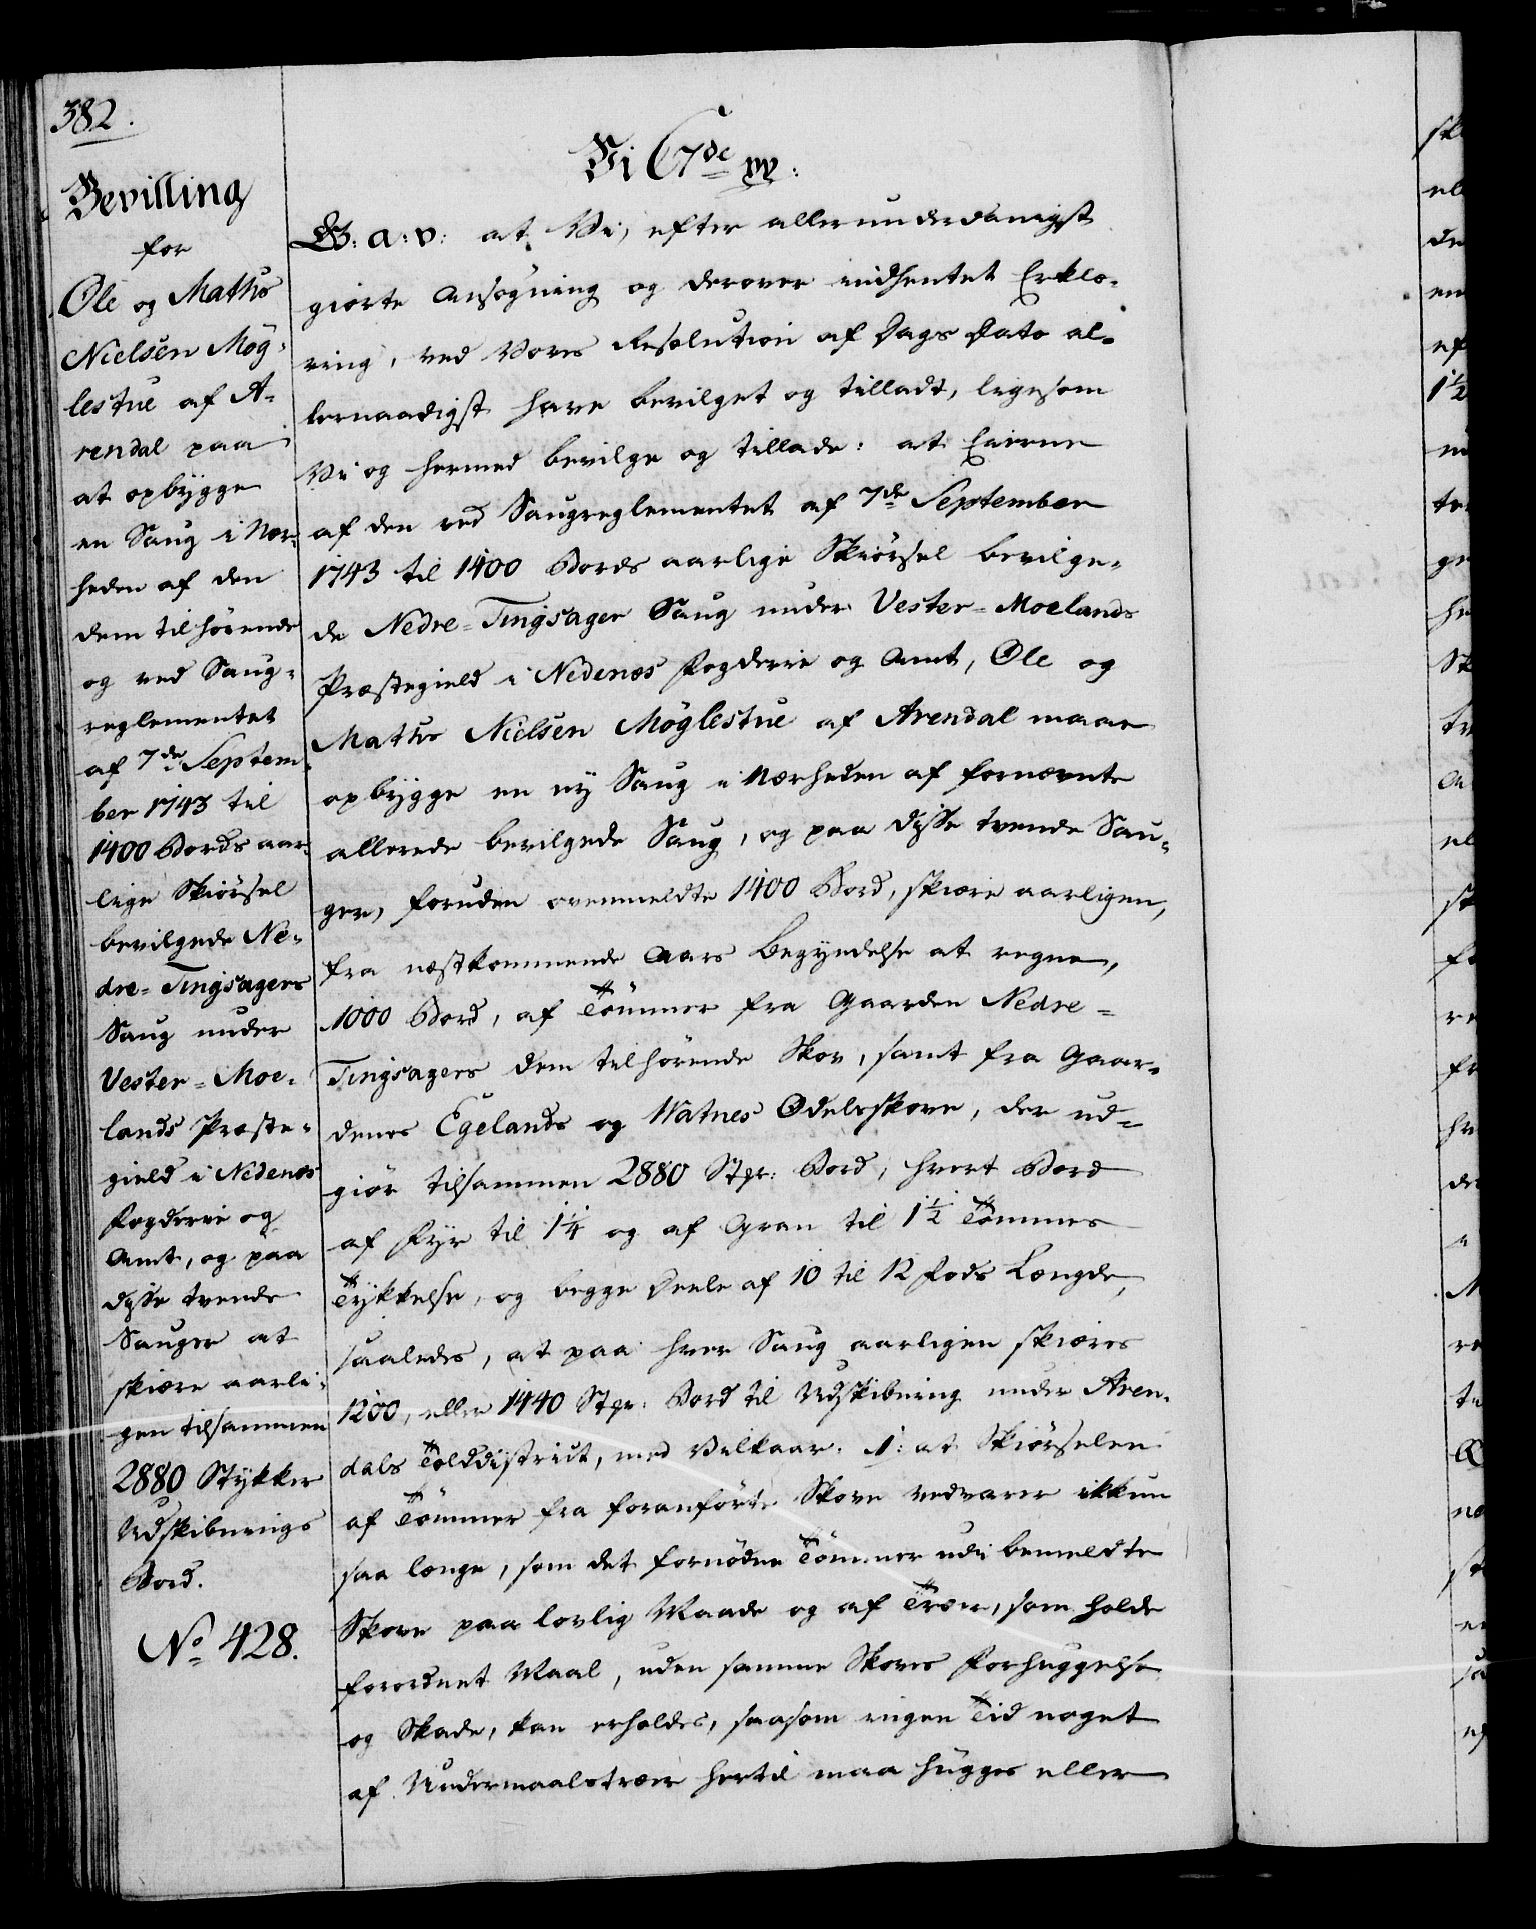 382.
Bevilling
for
Ole og Mathis
Nielsen Møg-
lestue af A-
rendal paa
at opbygge
en Saug i Nær-
heden af den
dem tilhørende
og ved Saug-
reglementet
af 7de Septem-
ber 1743 til
1400 Bords aar-
lige Skiørsel
bevilgede Ne-
dre-Tingsagers
Saug under
Vester-Moe-
lands Præste-
gield i Nedenæs
Fogderie og
Amt, og paa
disse tvende
Sauger at
skiære aarli-
gen tilsammen
2880 Stykker
Udskibnings
Bord.
No 428.
Vi C 7de
G: a: v: at Vi, efter allerunderdanigst
giorte Ansøgning og derover indhentet Erklæ-
ring, ved Vores Resolution af Dags Dato al-
lernaadigst have bevilget og tilladt, ligesom
Vi og hermed bevilge og tillade: at Eierne
af den ved Saugreglementet af 7de September
1743 til 1400 Bords aarlige Skiørsel bevilge-
de Nedre-Tingsager Saug under Vester-Moelands
Præstegield i Nedenæs Fogderie og Amt, Ole og
Mathis Nielsen Møglestue af Arendal maae
opbygge en ny Saug i Nærheden af fornævnte
allerede bevilgede Saug, og paa disse tvende Sau-
ger, foruden ovenmeldte 1400 Bord, skiære aarligen,
fra næstkommende Aars Begyndelse at regne,
1000 Bord, af Tømmer fra Gaarden Nedre-
Tingsagers dem tilhørende Skov, samt fra Gaar-
denes Egelands og Watnes Odelsskove, der ud-
giør tilsammen 2880 Stkr: Bord, hvert Bord
af Fyr til 1 1/4 og af Gran til 1 1/2 Tommes
Tykkelse, og begge Deele af 10 til 12 Fods Længde,
saaledes, at paa hver Saug aarligen skiæres
1200, eller 1440 Stkr: Bord til Udskibning under Aren-
dals Tolddistrict, med Vilkaar. 1: at Skiørselen
af Tømmer fra foranførte Skove vedvarer ikkun
saa længe, som det fornødne Tømmer udi bemeldte
Skove paa lovlig Maade og af Træer, som holde
forordnet Maal, uden samme Skoves Forhuggelse
og Skade, kan erholdes, saasom ingen Tid noget
af Undermaalstræer hertil maa hugges eller